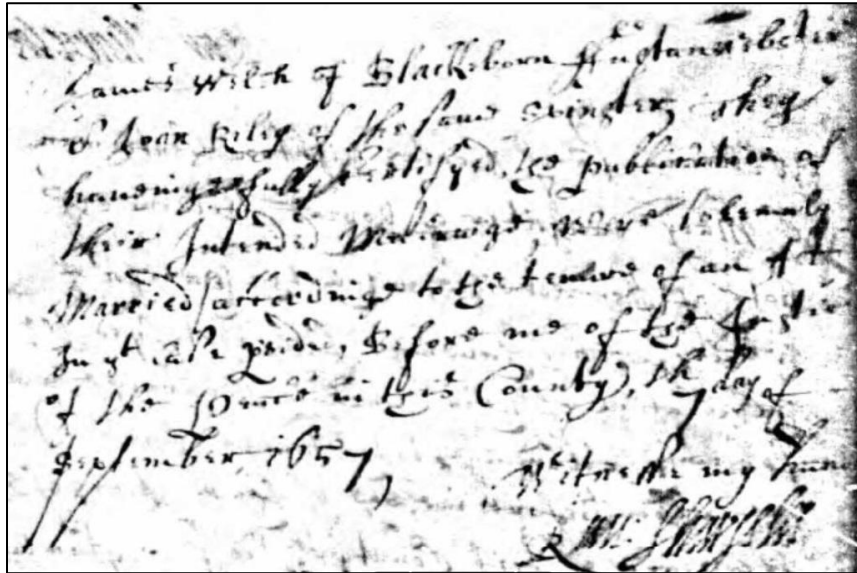 James Welch of Blackeborn ffustanwebster
and Joan Riley of the same Spinster, they
haveinge fully Certifyed, the publication of
their Intended Marriage, were solemnly
Married accordinge to the tenure of an Act
In yt case pvided, Before me of the Justic
of the peace in this County, th 7 day of
September, 1657,
Witnesse my hand